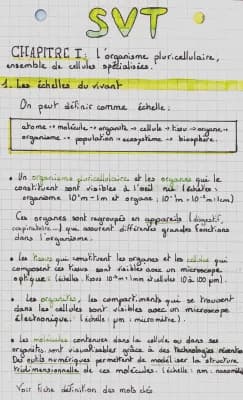 SVT
CHAPITRE I : L'organisme pluricellulaire,
ensemble de cellules spécialisées.
1. Les échelles du vivant
On peut définir comme échelle :
atome → molécule → organite → cellule → tissu → organe →
organisme → population → écosystème → biosphère.
• Un organisme pluricellulaire et les organes qui le
constituent sont visibles à l'oeil nu (échelle :
organisme 10°m - 1m et organe : 10⁻¹m - 10⁻²m : 1cm)
Ces organes sont regroupés en appareils (digestif,
respiratoire...) qui assurent différentes grandes fonctions
dans l'organisme.
• Les tissus qui constituent les organes et les cellules qui
composent ces tissus sont visibles avec un microscope
optique : (échelle : tissu 10⁻³m : 1mm et cellules (10 à 100 µm).
• Les organites, les compartiments qui se trouvent
dans les cellules sont visibles avec un microscope
électronique. (échelle : µm : micromètre).
• Les molécules contenues dans la cellule ou dans ses
organites sont visualisables grâce à des technologies récentes
Des outils numériques permettent de modéliser la structure
tridimensionnelle de ces molécules. (échelle : nm : nanomètre
Voir fiche définition des mots clés